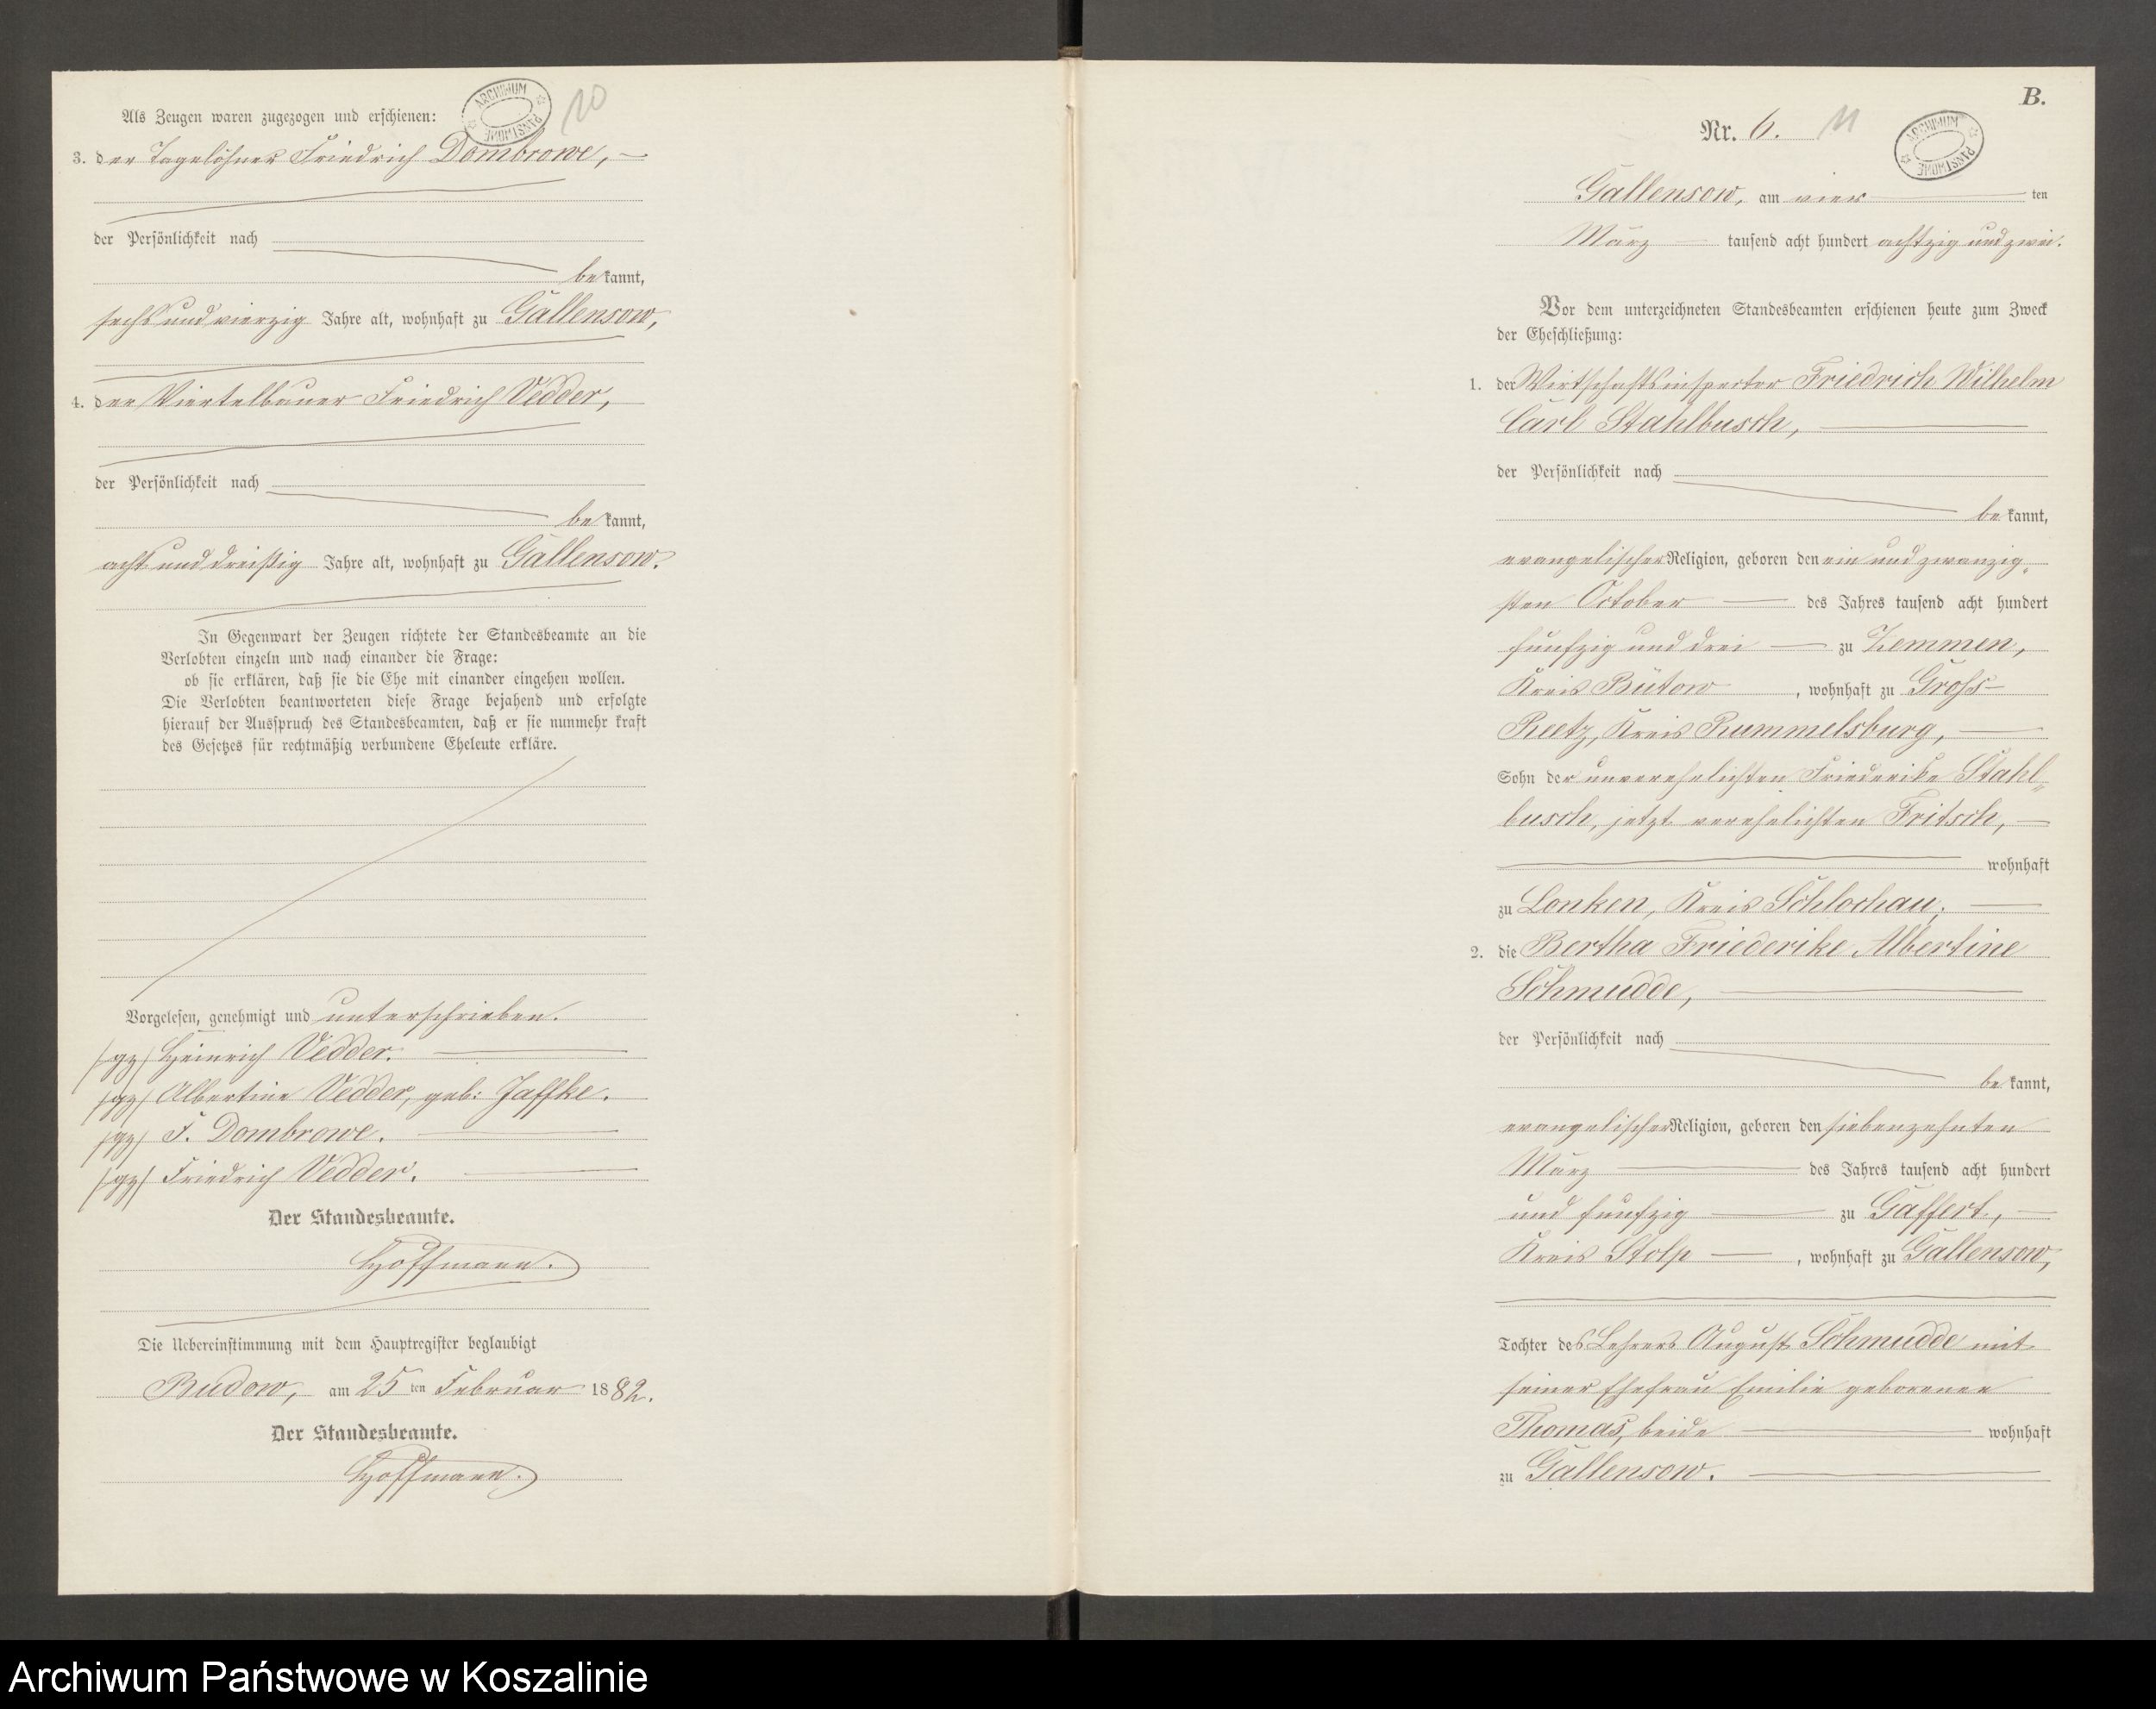 Als Zeugen waren zugezogen und erschienen:
ARCHIWUM PAŃSTWOWE
10
3. der Tagelöhner Friedrich Dombrowe,
der Persönlichkeit nach
be kannt,
sechs und vierzig Jahre alt, wohnhaft zu Gallensow,
4. der Viertelbauer Friedrich Vedder,
der Persönlichkeit nach
be kannt,
acht und dreißig Jahre alt, wohnhaft zu Gallensow.
In Gegenwart der Zeugen richtete der Standesbeamte an die
Verlobten einzeln und nach einander die Frage:
ob sie erklären, daß sie die Ehe mit einander eingehen wollen.
Die Verlobten beantworteten diese Frage bejahend und erfolgte
hierauf der Ausspruch des Standesbeamten, daß er sie nunmehr kraft
des Gesetzes für rechtmäßig verbundene Eheleute erkläre.
Vorgelesen, genehmigt und unterschrieben.
/gz/ Heinrich Vedder.
/gz/ Albertine Vedder, geb: Jaffke.
/gz/ F. Dombrowe.
/gz/ Friedrich Vedder.
Der Standesbeamte.
Hoffmann.
Die Uebereinstimmung mit dem Hauptregister beglaubigt
Budow, am 25 ten Februar 1882.
Der Standesbeamte.
Hoffmann.
B.
Nr. 6. 11
ARCHIWUM PAŃSTWOWE
Gallensow, am vier ten
März tausend acht hundert achtzig und zwei.
Vor dem unterzeichneten Standesbeamten erschienen heute zum Zweck
der Eheschließung:
1. der Wirthschaftsinspector Friedrich Wilhelm
Carl Stahlbusch,
der Persönlichkeit nach
be kannt,
evangelischer Religion, geboren den ein und zwanzig-
sten October des Jahres tausend acht hundert
funfzig und drei zu Zemmen,
Kreis Bütow, wohnhaft zu Gross-
Reetz, Kreis Rummelsburg,
Sohn der unverehelichten Friederike Stahl-
busch, jetzt verehelichten Fritsch,
wohnhaft
zu Lonken, Kreis Schlochau;
2. die Bertha Friederike Albertine
Schmudde,
der Persönlichkeit nach
be kannt,
evangelischer Religion, geboren den siebenzehnten
März des Jahres tausend acht hundert
und funfzig zu Gaffert,
Kreis Stolp, wohnhaft zu Gallensow,
Tochter des Lehrers August Schmudde mit
seiner Ehefrau Emilie geborenen
Thomas, beide wohnhaft
zu Gallensow.
Archiwum Państwowe w Koszalinie